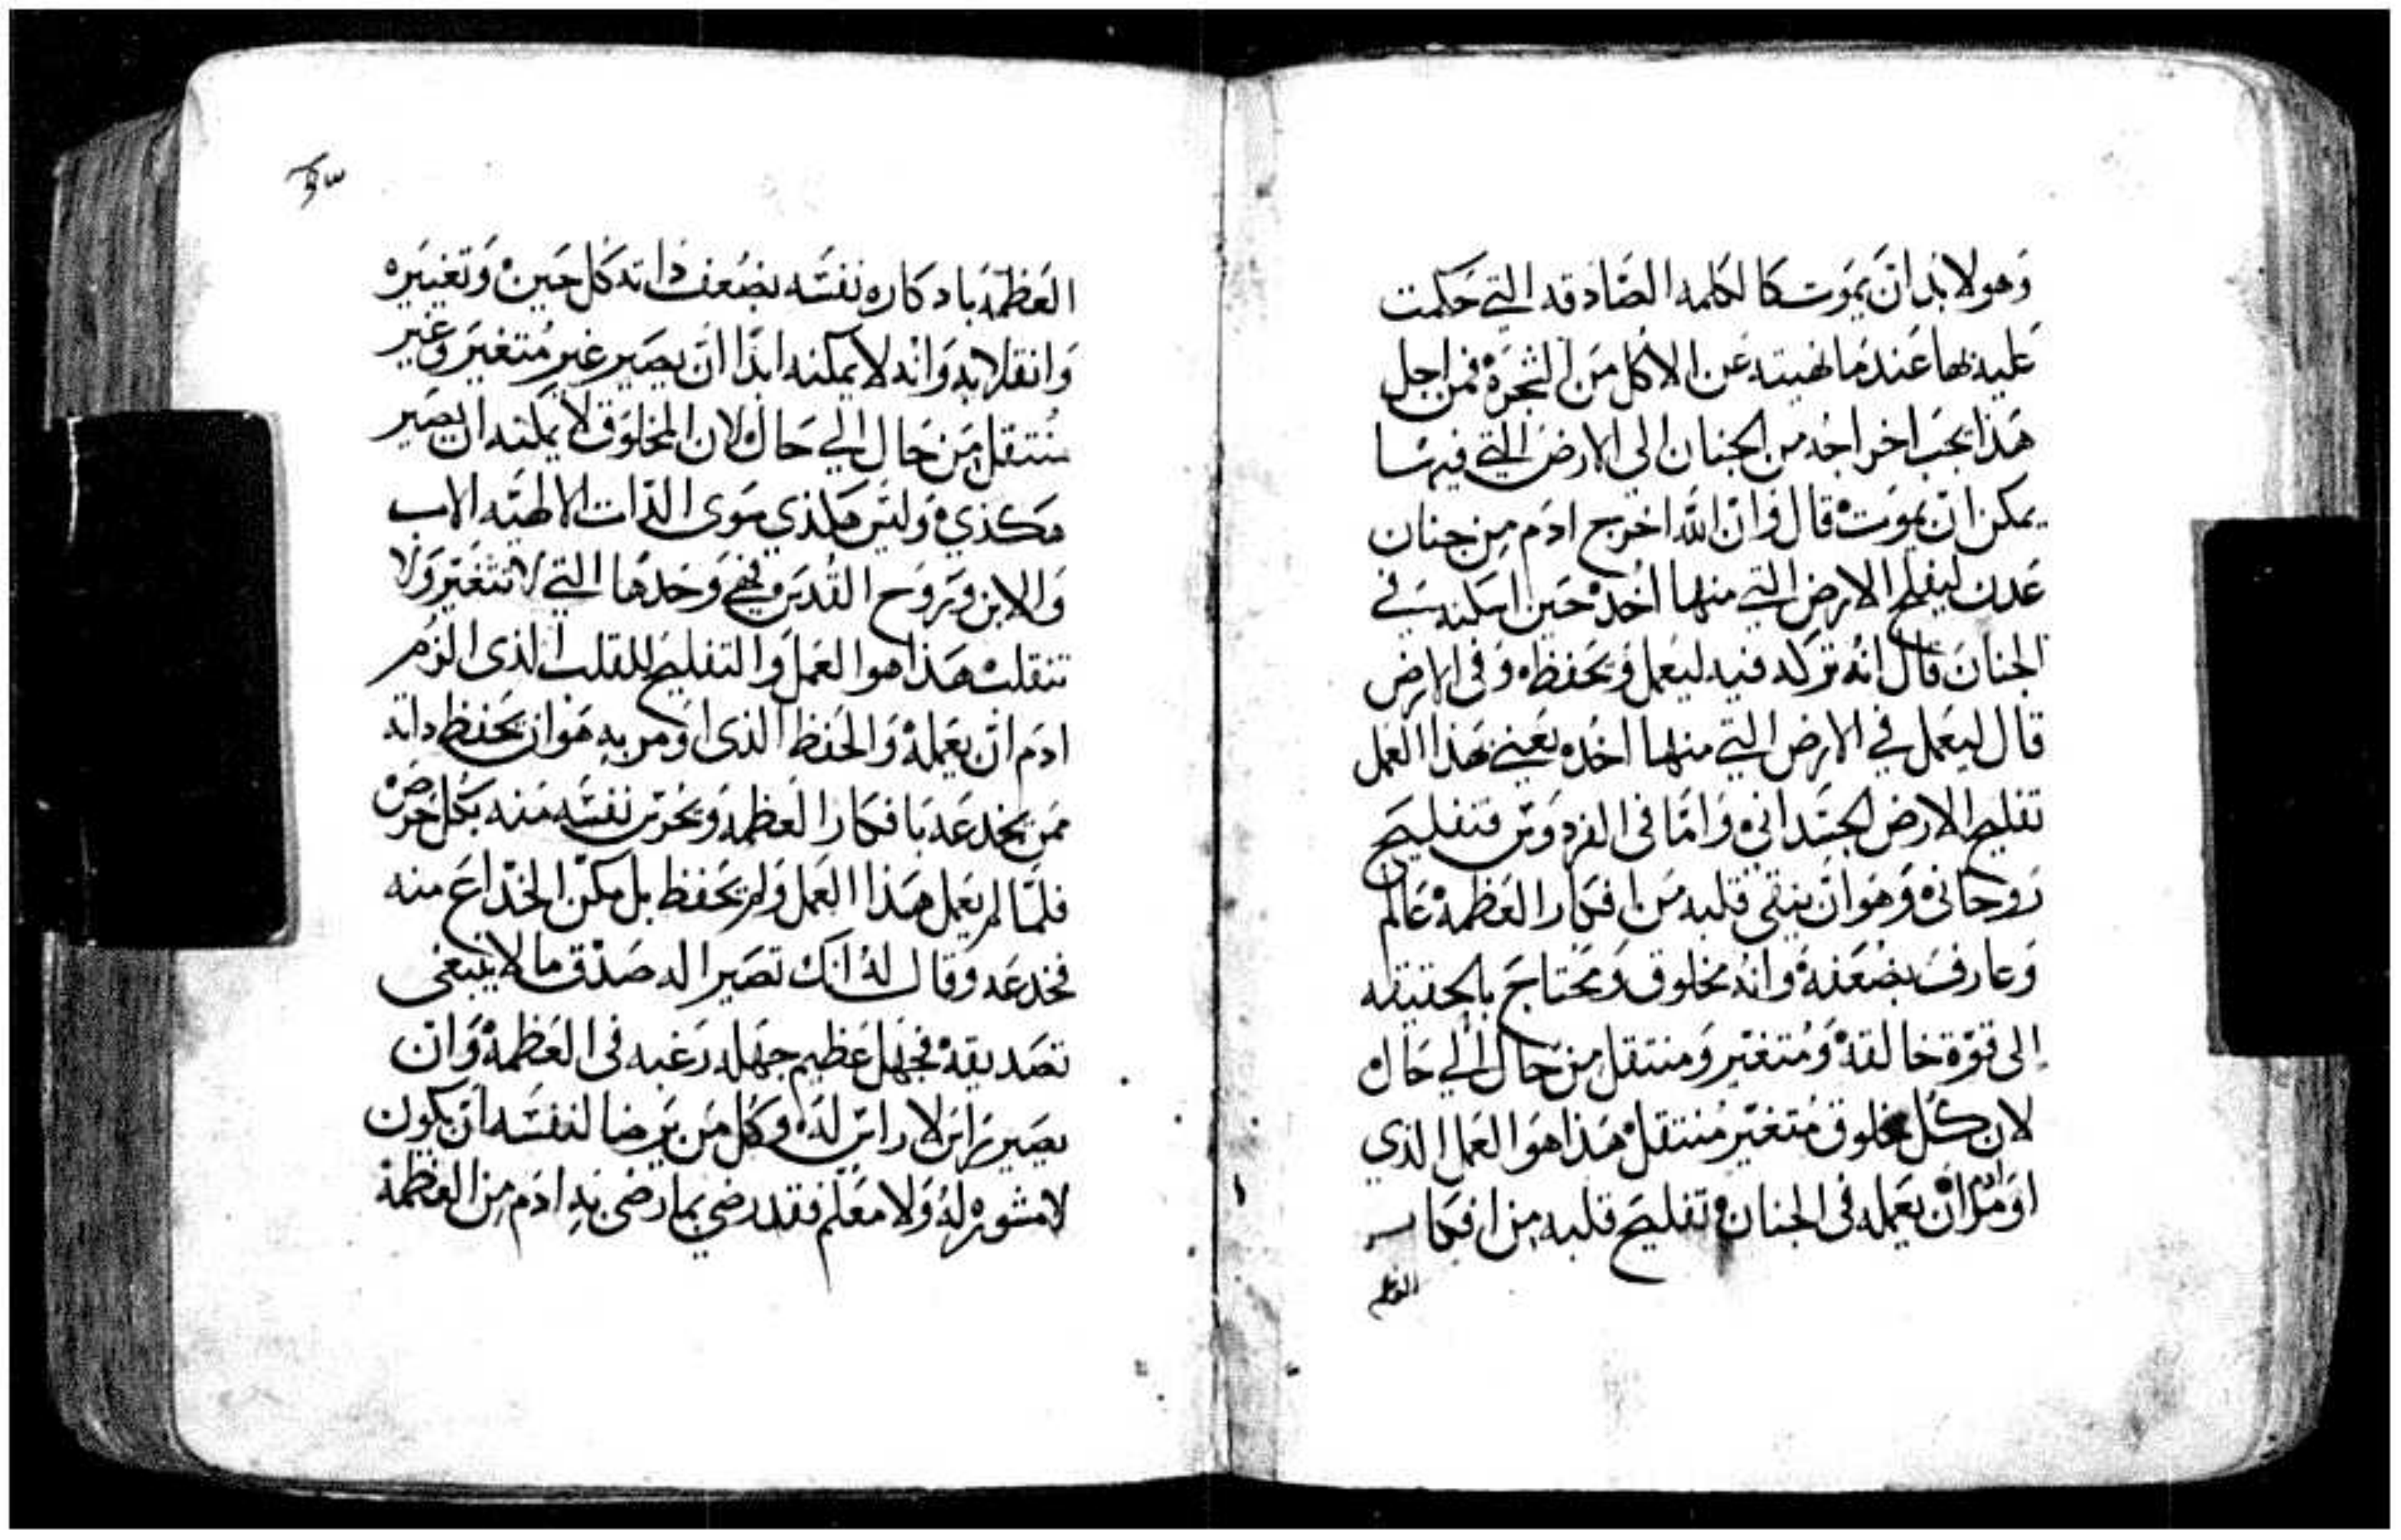 وهو لابد ان يموت كالكلمه الصادقه التي حكمت
عليه بها عندما نهيته عن الاكل من الشجره فمن اجل
هذا يجب اخراجه من الجنان الي الارض التي فيها
يمكن ان يموت قال وان الله اخرج ادم من جنان
عدن ليفلح الارض التي منها اخد حين اسكنه في
الجنان قال انه تركه فيه ليعمل ويحفظه وفي الارض
قال ليعمل في الارض التي منها اخده يعني بهذا العمل
تفليح الارض الجسداني واما في الفردوس فتفليح
روحاني وهو ان ينقي قلبه من افكار العظمه عالم
وعارف بضعفه وانه مخلوق ومحتاج بالحقيقه
إلى قوة خالقه ومتغير ومنتقل من حال الي حال
لان كل مخلوق متغير منتقل هذا هو العمل الذي
اومر ادم ان يعمله في الجنان تفليح قلبه من افكار
العظمه باد كاره نفسه بضعف ذاته كل حين وتغييره
وانقلابه وانه لا يمكنه ابدا ان يصير غير متغير وغير
منتقل من حال الي حال لان المخلوق لا يمكنه ان يصير
هكذي وليس هكذي سوى الذات الالهيه الاب
والابن وروح القدس فهي وحدها التي لا تتغير ولا
تنقلب هذا هوا العمل والتفليح للقلب الذي الزم
ادم ان يعمله والحفظ الذي اومر به هو ان يحفظ داته
ممن يخدعه بافكار العظمه ويحرس نفسه منه بكل حرص
فلما لم يعمل هذا العمل ولم يحفظ بل مكن الخداع منه
فخدعه وقال له انك تصير اله صدق ما لا ينبغي
تصديقه فجهل عظيم جهله رغبه في العظمه وان
يصير راس لا راس له وكل من يرضا لنفسه ان يكون
لا مشوره له ولا معلم فقد رضي بما رضي به ادم من العظمة